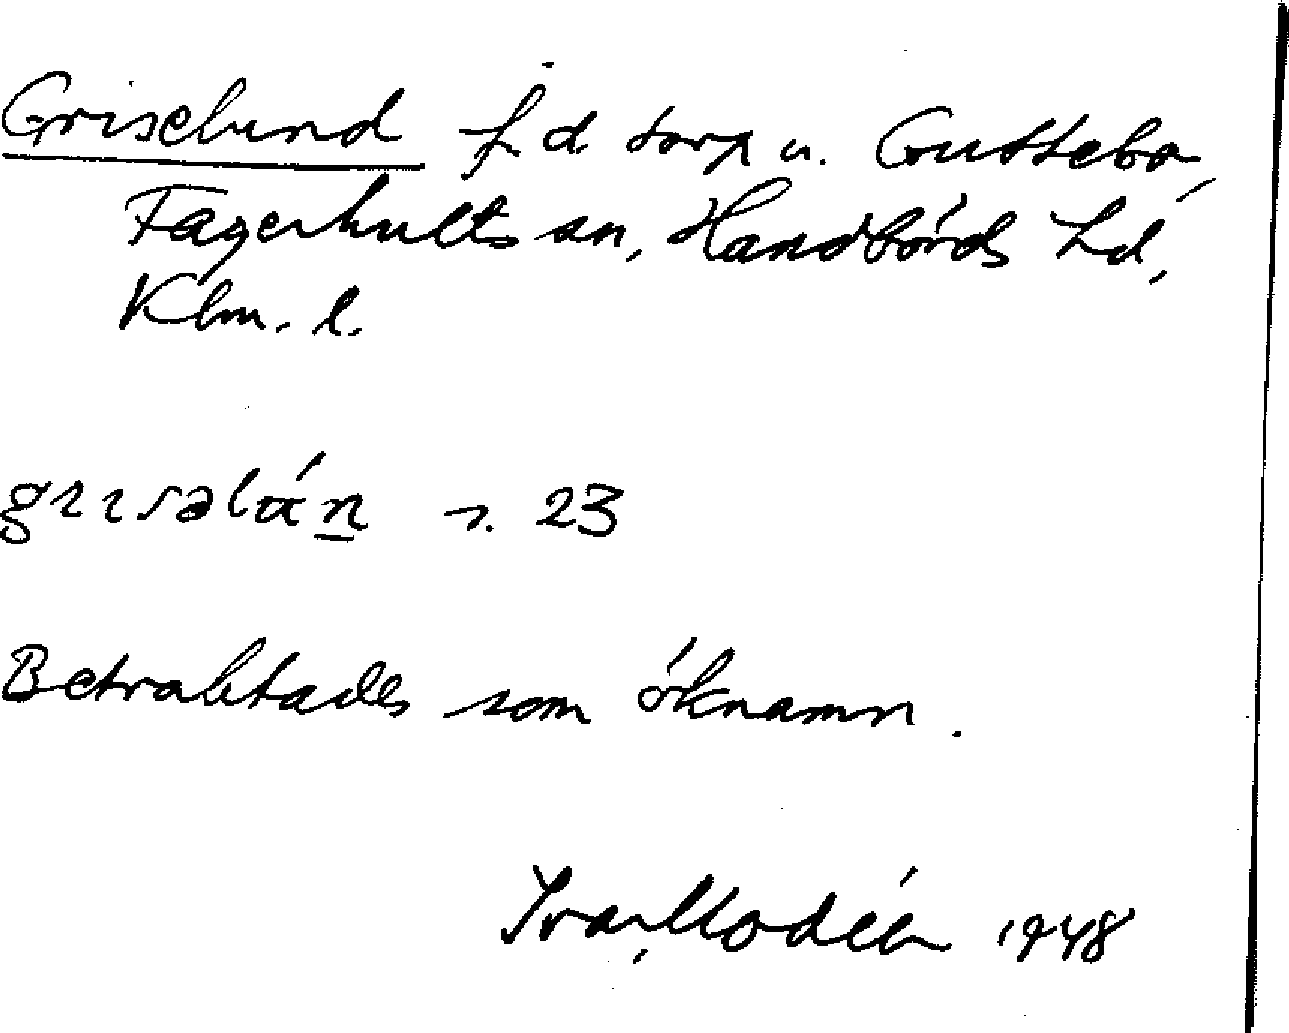 Griselund f. d torp u. Guttebo,
Fagerhults sn, Handbörds hd,
Klm. l.
s. 23
Betraktades som öknamn.
Ivar Modéer 1948